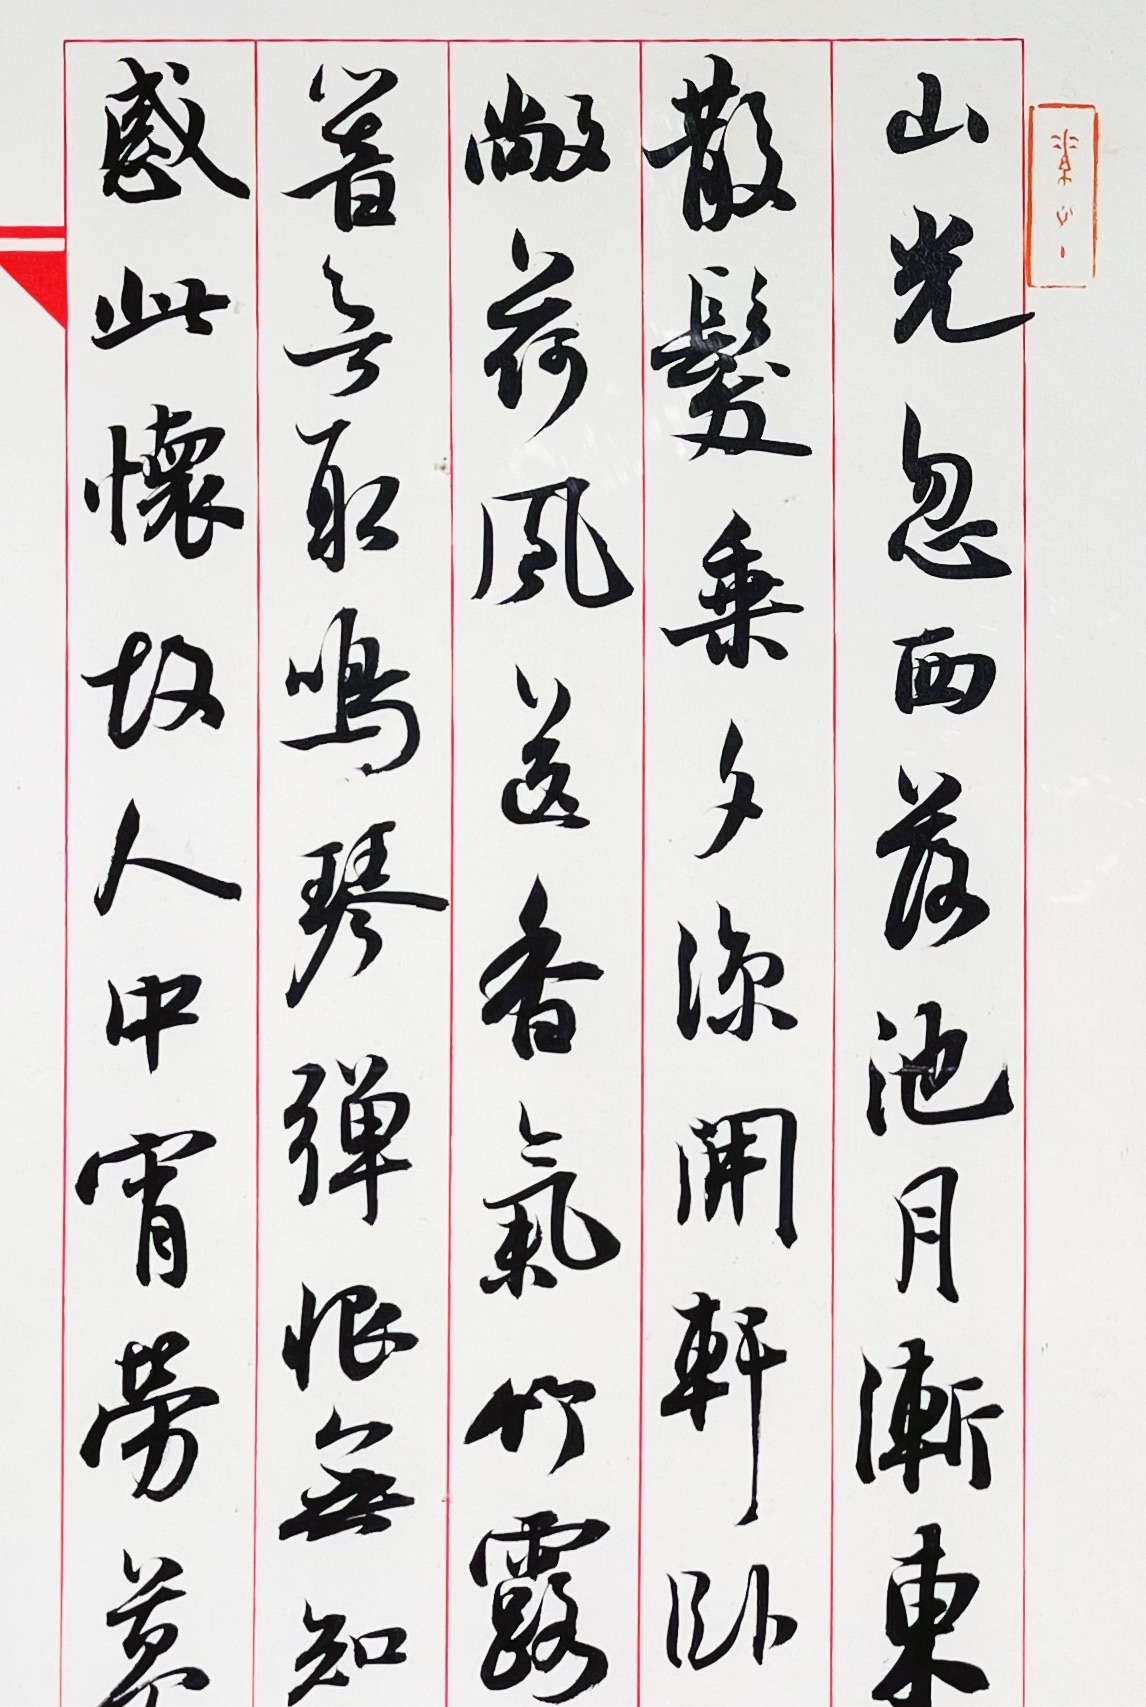 山光忽西落池月漸東
散髮乘夕涼開軒卧
敞荷風送香氣竹露
響欲取鳴琴彈恨無知
感此懷故人中宵勞夢